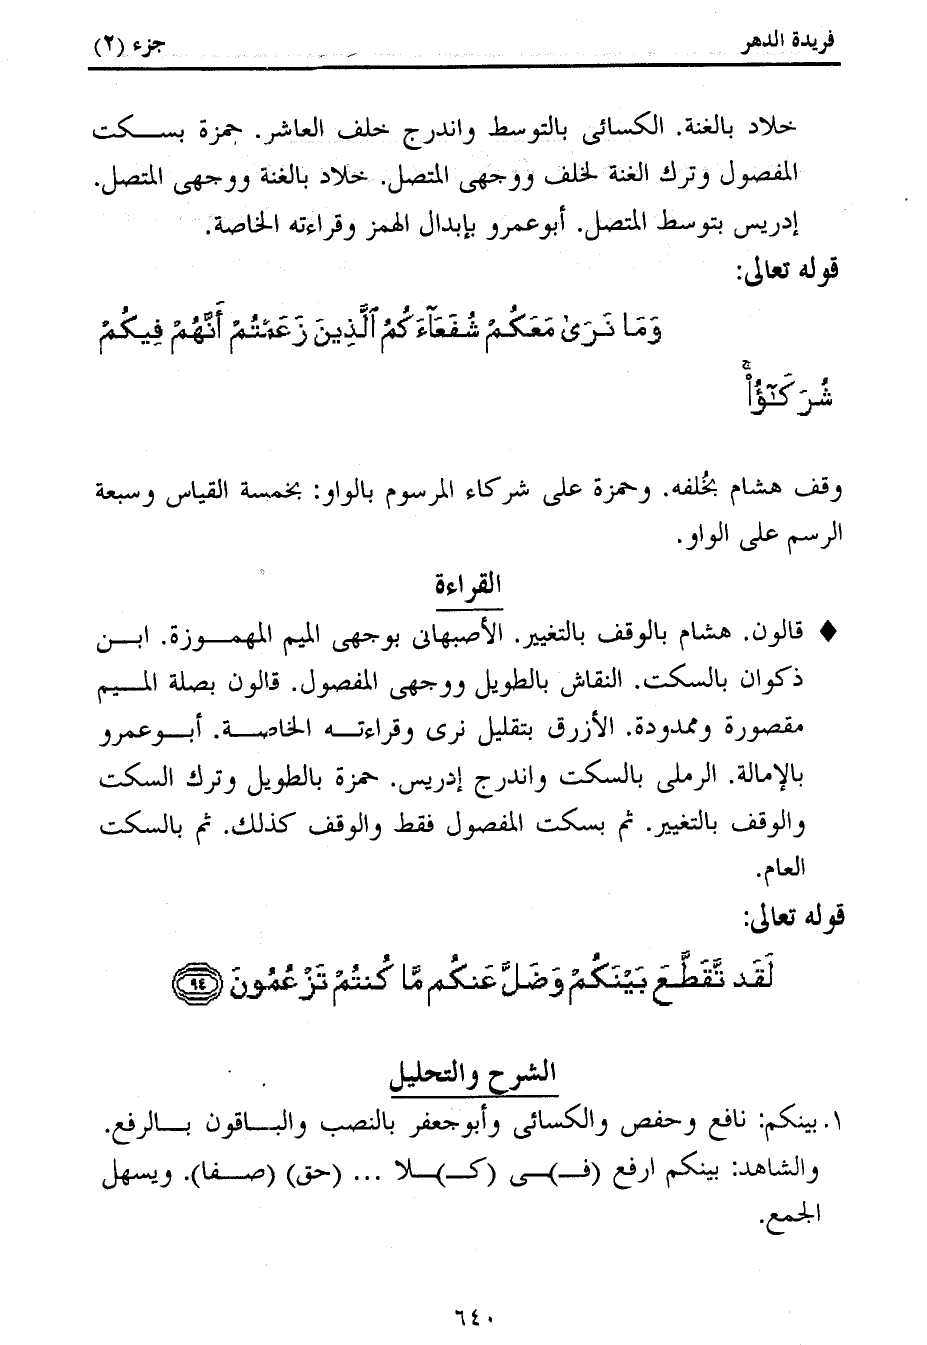 فريدة الدهر جزء (٢)
خلاد بالغنة. الكسائى بالتوسط واندرج خلف العاشر. حمزة بسكت
المفصول وترك الغنة لخلف ووجهى المتصل. خلاد بالغنة ووجهى المتصل.
إدريس بتوسط المتصل. أبوعمرو بإبدال الهمز وقراءته الخاصة.
قوله تعالى:
وَمَا نَرَىٰ مَعَكُمْ شُفَعَآءَكُمُ ٱلَّذِينَ زَعَمْتُمْ أَنَّهُمْ فِيكُمْ
شُرَكَـٰٓؤُا۟ ۚ
وقف هشام بخُلفه. وحمزة على شركاء المرسوم بالواو: بخمسة القياس وسبعة
الرسم على الواو.
القراءة
♦ قالون. هشام بالوقف بالتغيير. الأصبهانى بوجهى الميم المهموزة. ابن
ذكوان بالسكت. النقاش بالطويل ووجهى المفصول. قالون بصلة الميم
مقصورة وممدودة. الأزرق بتقليل نرى وقراءته الخاصة. أبوعمرو
بالإمالة. الرملى بالسكت واندرج إدريس. حمزة بالطويل وترك السكت
والوقف بالتغيير. ثم بسكت المفصول فقط والوقف كذلك. ثم بالسكت
العام.
قوله تعالى:
لَقَد تَّقَطَّعَ بَيْنَكُمْ وَضَلَّ عَنكُم مَّا كُنتُمْ تَزْعُمُونَ ٩٤
الشرح والتحليل
١. بينكم: نافع وحفص والكسائى وأبوجعفر بالنصب والباقون بالرفع.
والشاهد: بينكم ارفع (فـ)ـى (كـ)ـلا ... (حق) (صفا). ويسهل
الجمع.
٦٤٠